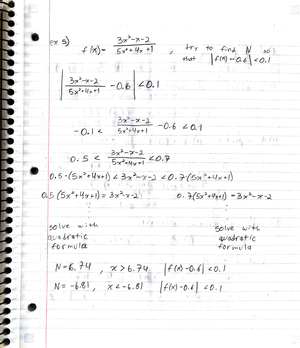 ex 5) f(x) = 3x²-x-2 / 5x²+4x+1 , try to find N so
that |f(x)-0.6| < 0.1
| 3x²-x-2 / 5x²+4x+1 - 0.6 | < 0.1
-0.1 < 3x²-x-2 / 5x²+4x+1 - 0.6 < 0.1
0.5 < 3x²-x-2 / 5x²+4x+1 < 0.7
0.5·(5x²+4x+1) < 3x²-x-2 < 0.7·(5x²+4x+1)
0.5(5x²+4x+1) = 3x²-x-2
0.7(5x²+4x+1) = 3x²-x-2
solve with
quadratic
formula
solve with
quadratic
formula
N = 6.74 , x > 6.74 |f(x)-0.6| < 0.1
N = -6.81 , x < -6.81 |f(x)-0.6| < 0.1